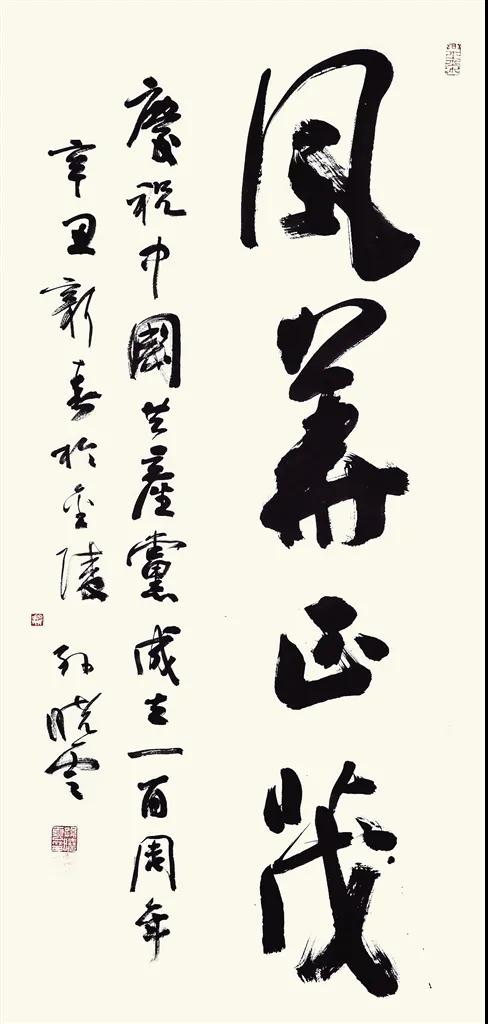 風華正茂
慶祝中國共產黨成立一百周年
辛丑新春於金陵 孫曉雲